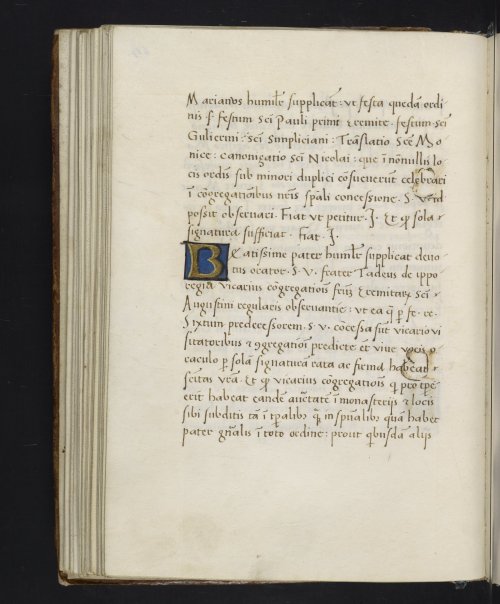 Marianus humilr̄ supplicat̄: vt festa quedā ordi
nis s̄. festum sc̄i Pauli primi Eremite. festum sc̄i
Guliermi: sc̄i Simpliciani: Trāslatio sc̄e Mo
nice: canonizatio sc̄i Nicolai: que ī nōnullis lo
cis ordis̄ sub minori duplici cōsueuerūt celebrari
ī cōgregationibus nr̄is sp̄ali concessione. S. v. id
possit obseruari. Fiat vt petitur. J. Et ꝙ sola
signatura sufficiat. Fiat. J.
Beatissime pater humilr̄ supplicat deuo
tus orator. S. v. frater Tadeus de yppo
regia vicarius cōgregationis̄ frūm Eremitarꝫ sc̄i
Augustini regularis obseruantie: vt ea q̄ p̄ fe. re.
Sixtum predecessorem. S. v. cōcessa sūt vicario vi
sitatoribus & ꝯgregatiōi predicte, et viue vocis o
raculo ꝑ solā signaturā rata ac firma habeat
sc̄itas vr̄a. Et ꝙ vicarius cōgregationis̄ q̄ pro tꝑe
erit habeat eandē auc̄tatē ī monasterijs & locis
sibi subditis tā ī tp̄alibꝫ q̄ꝫ in spūalibꝫ quā habet
pater gn̄alis ī toto ordine: prout qͥbusdā alijs